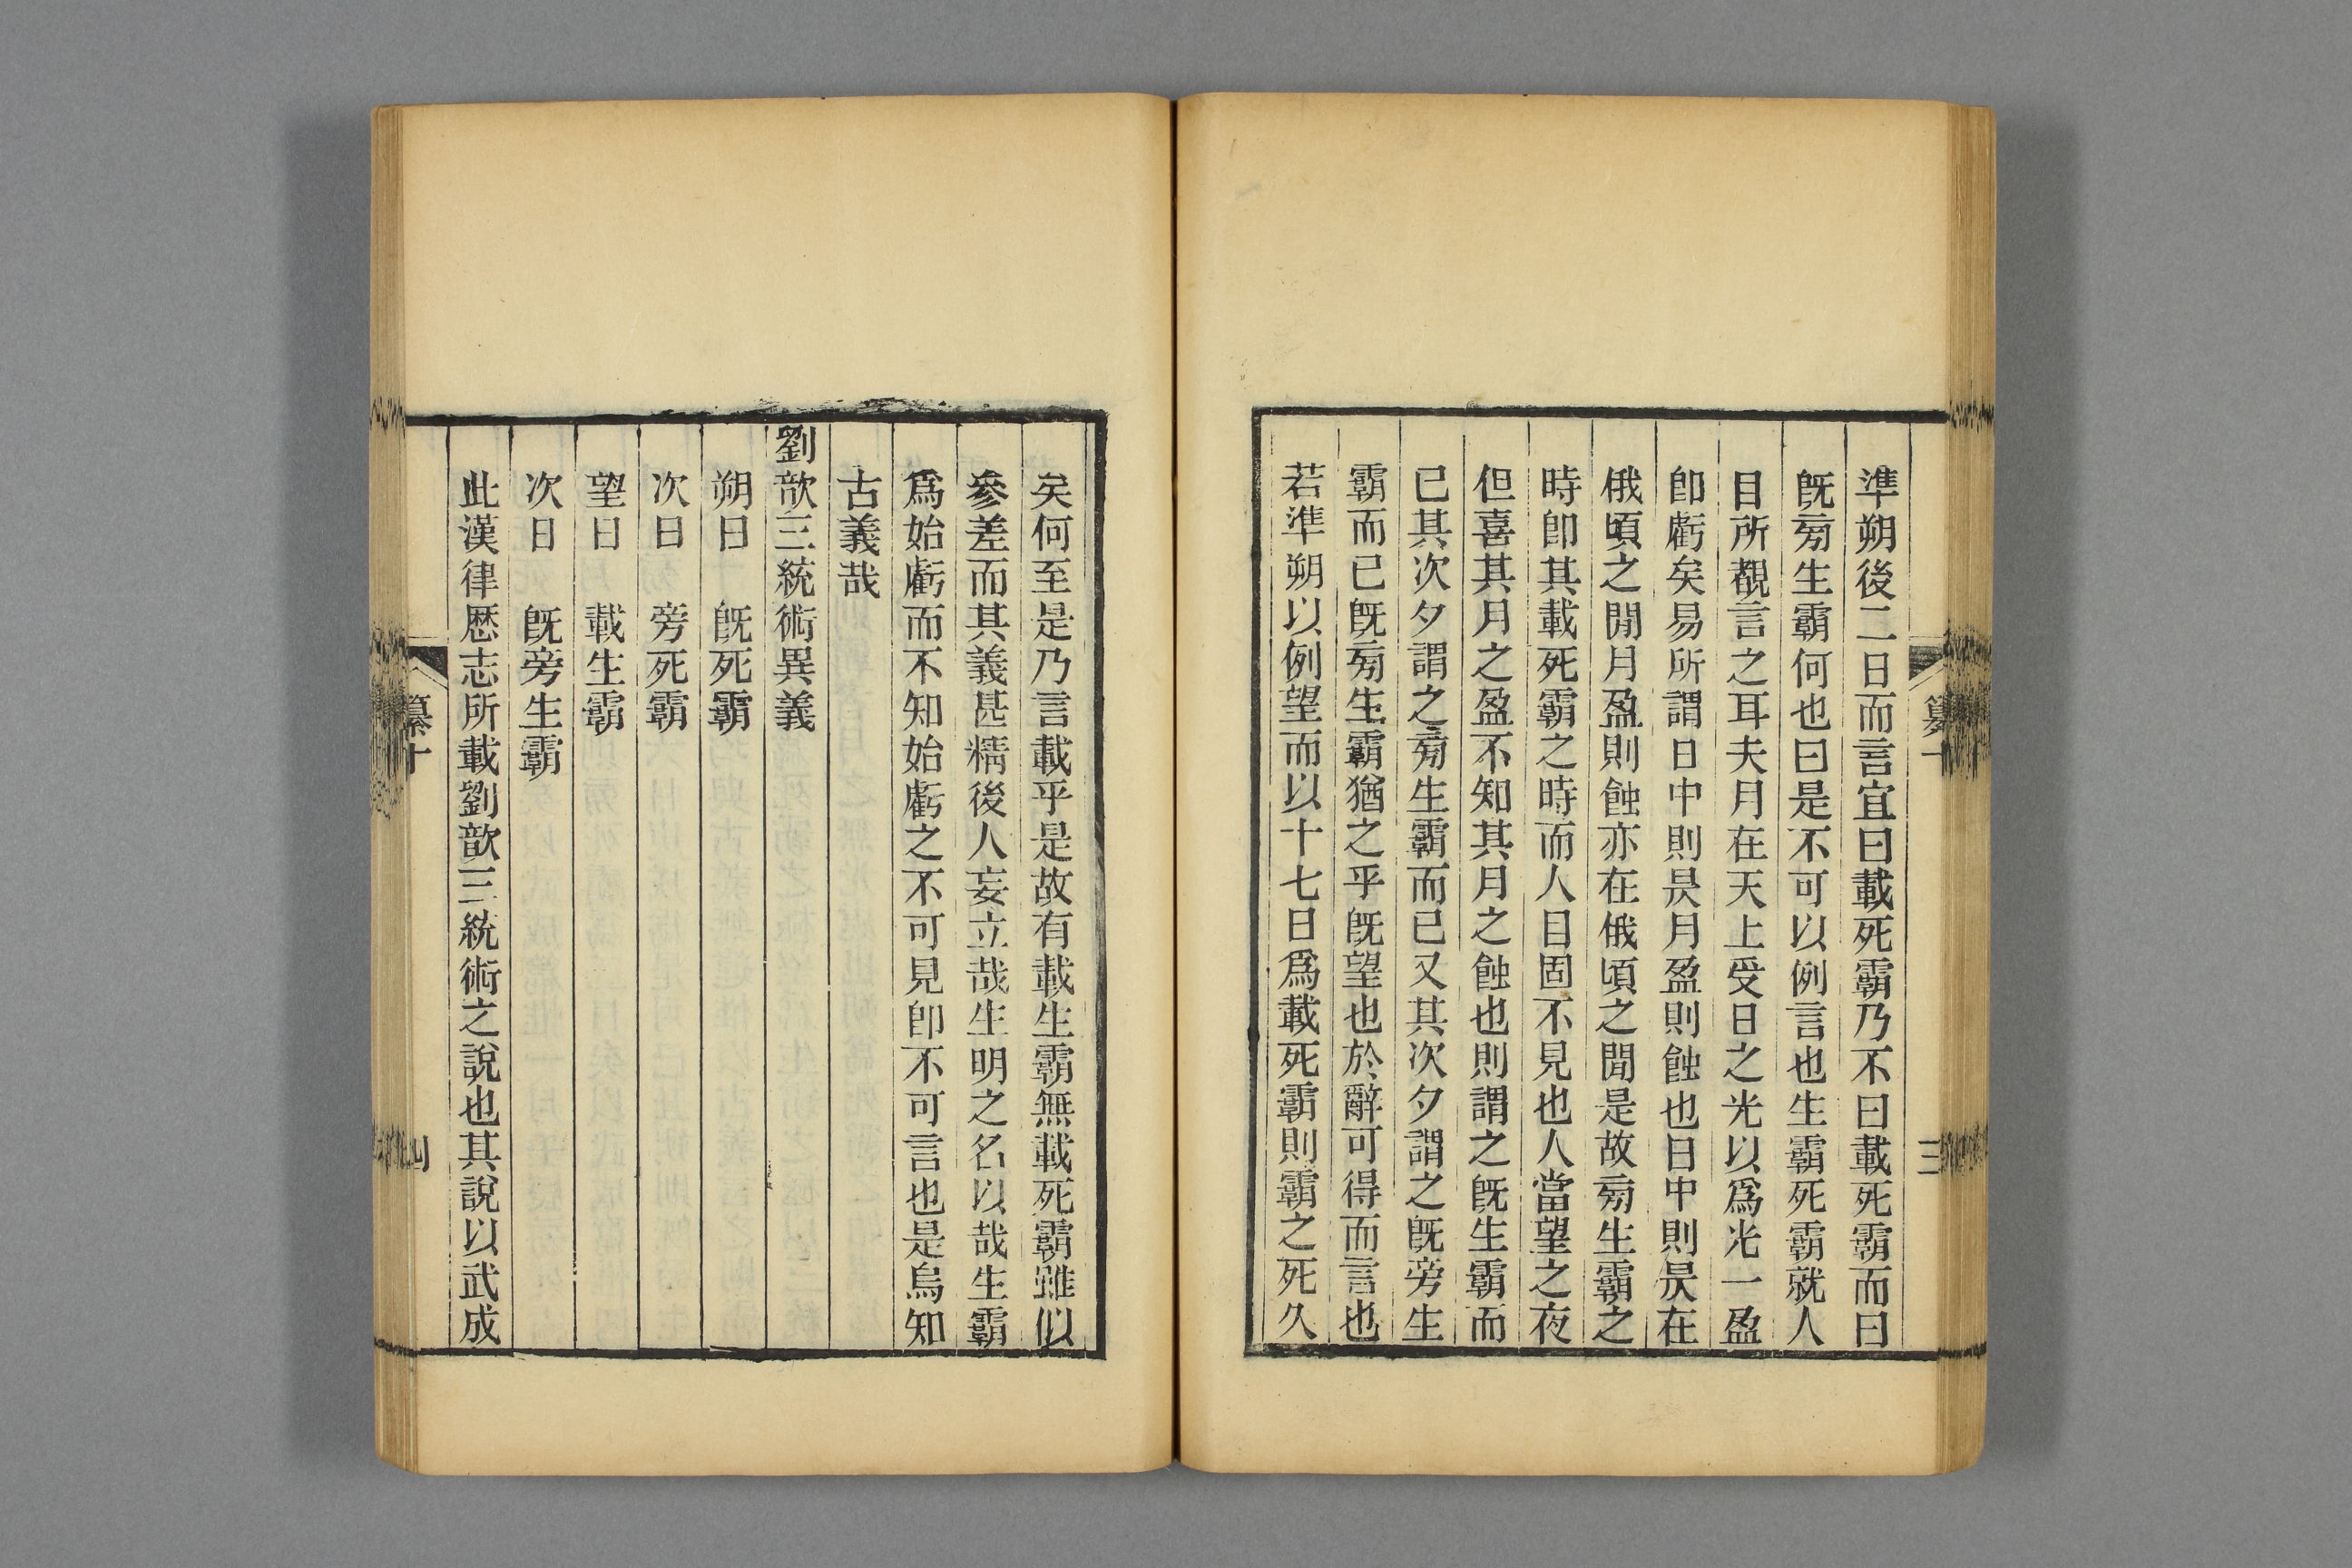 準朔後二日而言宜曰載死霸乃不曰載死霸而曰
旣旁生霸何也曰是不可以例言也生霸死霸就人
目所覩言之耳夫月在天上受日之光以爲光一盈
卽虧矣易所謂日中則昃月盈則蝕也日中則昃在
俄頃之閒月盈則蝕亦在俄頃之閒是故旁生霸之
時卽其載死霸之時而人目固不見也人當望之夜
但喜其月之盈不知其月之蝕也則謂之旣生霸而
已其次夕謂之旁生霸而已又其次夕謂之旣旁生
霸而已旣旁生霸猶之乎旣望也於辭可得而言也
若準朔以例望而以十七日爲載死霸則霸之死久
纂十
三
矣何至是乃言載乎是故有載生霸無載死霸雖似
參差而其義甚精後人妄立哉生明之名以哉生霸
爲始虧而不知始虧之不可見卽不可言也是烏知
古義哉
劉歆三統術異義
朔日 旣死霸
次日 旁死霸
望日 載生霸
次日 旣旁生霸
此漢律厯志所載劉歆三統術之說也其說以武成
纂十